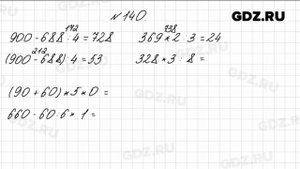 № 140
GDZ.RU
172
900 - 688 : 4 = 728
738
369 × 2 : 3 = 24
212
(900 - 688) : 4 = 53
328 × 3 : 8 =
(90 + 60) × 5 × 0 =
660 : 60 · 6 × 1 =
GDZ.RU